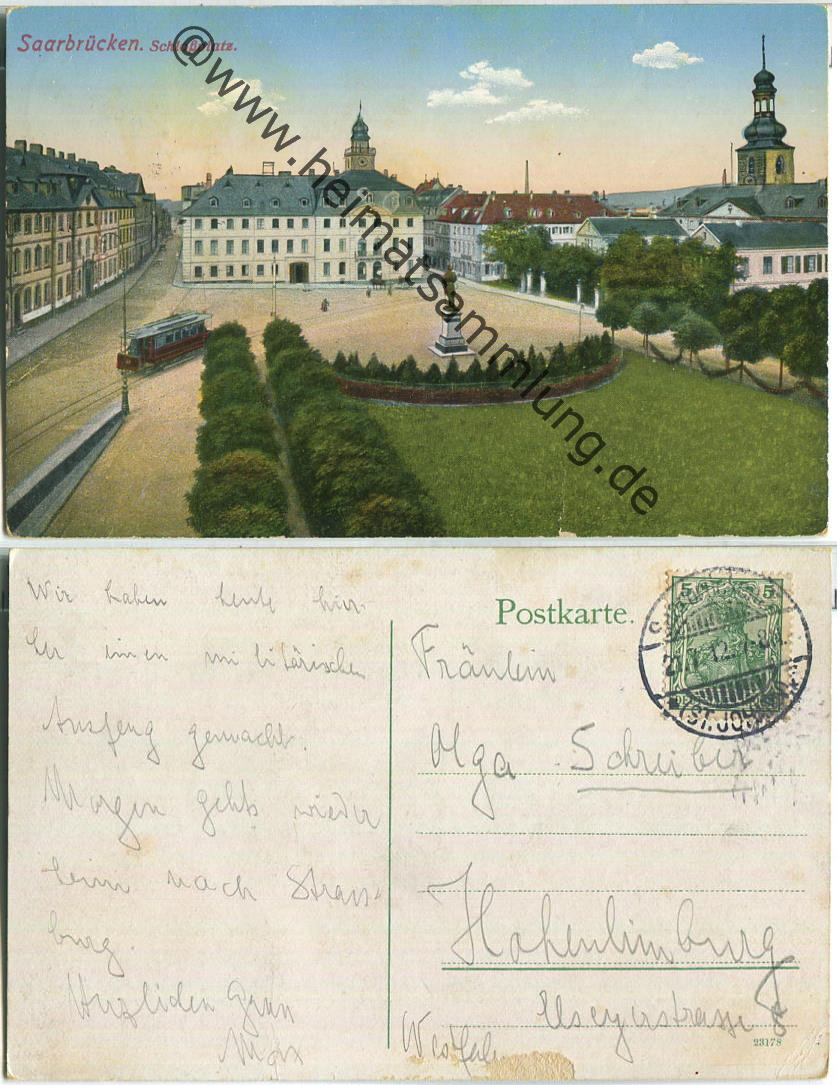 Saarbrücken. Schloßplatz.
@www.heimatsammlung.de
Wir haben heute hier-
her einen militärischen
Ausflug gemacht.
Morgen gehts wieder
heim nach Strass-
burg.
Herzlichen Gruss
Max
Postkarte.
5 5
SAARBRÜCKEN
12. 8
(ST. JOHANN)
Fräulein
Olga Schreiber
Hohenlimburg
Elseyerstrasse
Westfalen
23178